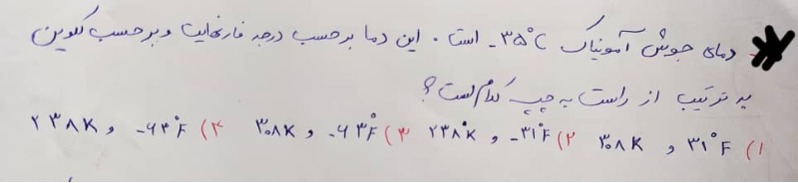 دمای جوش آمونیاک ‎-۳۵°C است . این دما بر حسب درجه فارنهایت و بر حسب کلوین
به ترتیب از راست به چپ کدام است؟
۱) ۳۱°F و ۳۰۸K ۲) ‎-۳۱°F و ۲۳۸°K ۳) ‎-۶۳°F و ۳۰۸K ۴) ‎-۶۳°F و ۲۳۸K